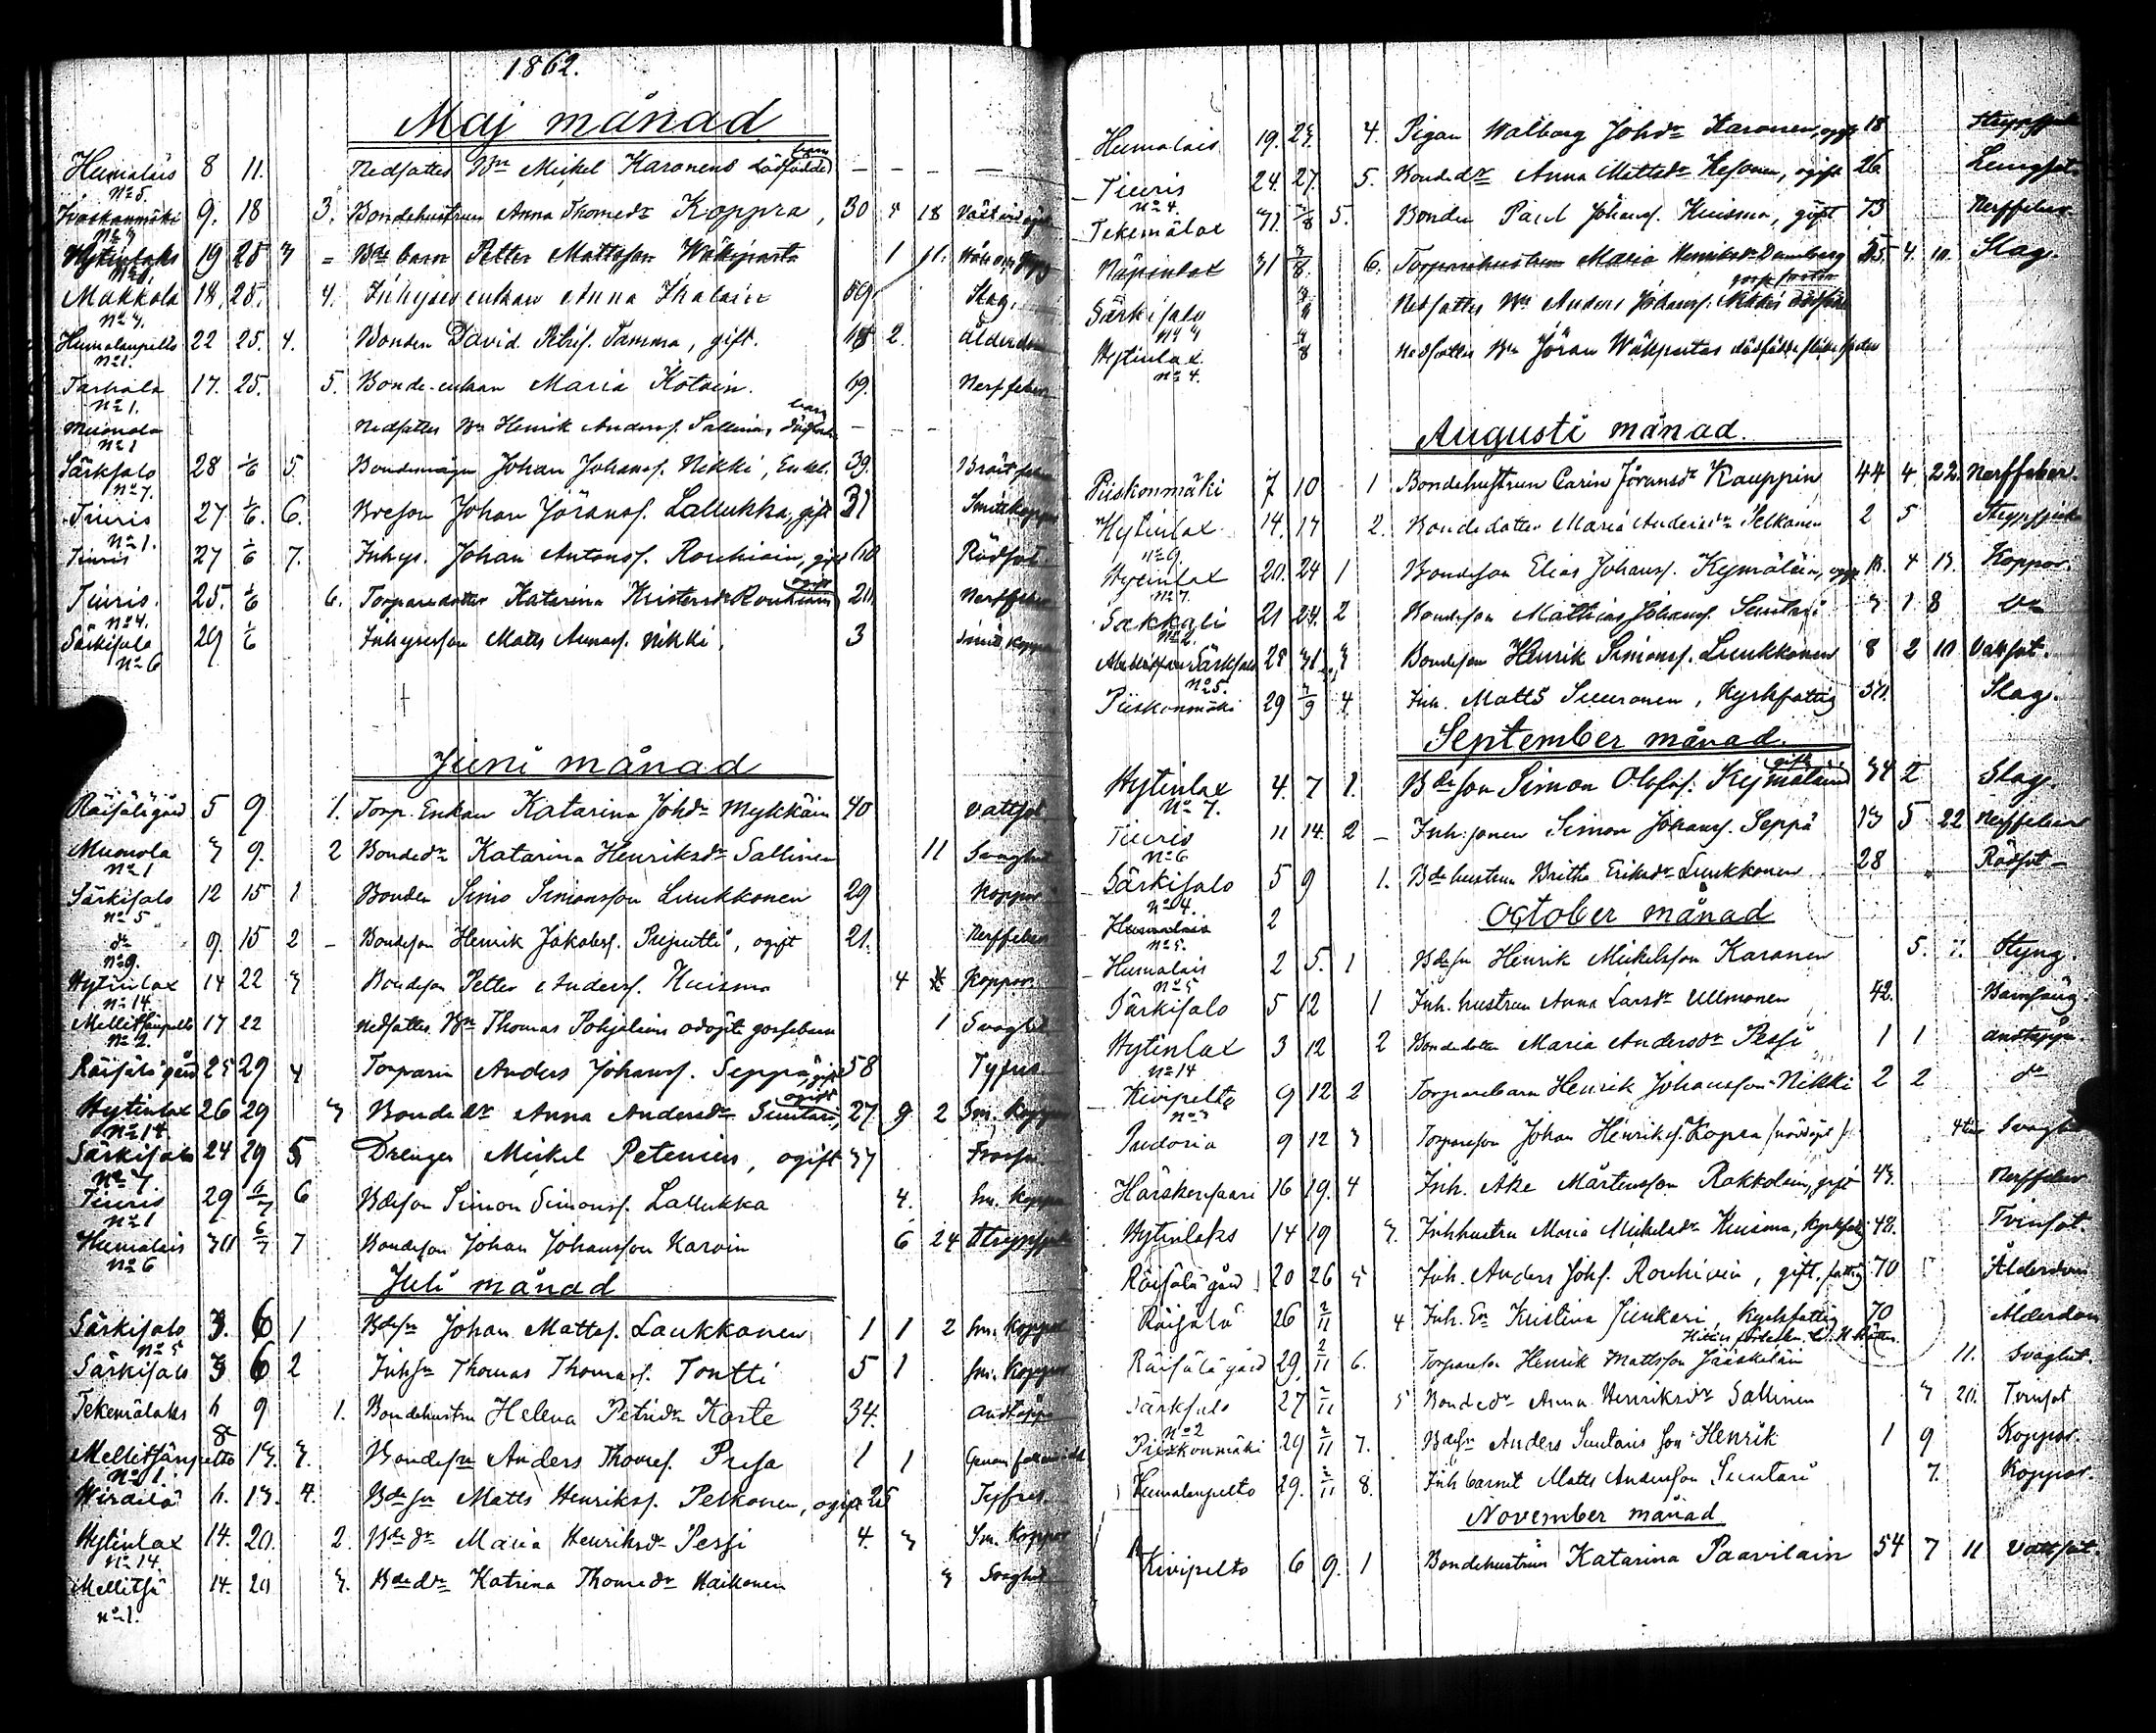 1862.
Maj månad
Humalais 8 11. Nedsattes Bn Mickel Karonens dödfödde barn — — — —
No 5.
9. 18 3. Bondehustrun Anna Thomedr Koppra, 30 4 18
No 3
Hytinlaks 19 25 3 = Bde barn Petter Mattsson Wäkiparta 1 11.
No 8.
Makkola 18. 25. 4. Inhyses enkan Anna Ihalain 59. Slag.
No 3.
Humalanpelto 22 25. 4. Bonden David Petris. Tamma, gift. 2. ålderdom
No 1.
Tarkala 17. 25. 5. Bonde-enkan Maria Kötsin. 69. Nerffeber
No 1.
Muonola Nedsattes Bn Henrik Anderss. Sallinens barn — —
No 1
Särkisalo 28 1/6 5 Bondemågen Johan Johanss. Nikki, Enkl. 39.
No 7.
Tiuris 27 1/6. 6. Bdeson Johan Jöranss. Lallukka, gift 31 Smittkoppor
No 1.
Tiuris 27 1/6 7. Inhys. Johan Antonss. Rouhiain, gift 60 Rödsot.
Tiuris. 25. 1/6 6. Torparedotter Katarina Kristersdr Rouhiain ogift 20. Nerffeber
No 4.
Särkisalo 29 1/6 Inhysesson Matts Annass. Nikki, 3 Smitt koppor
No 6
Juni månad
Räisälä gård 5 9. 1. Torp. Enkan Katarina Johdr Mykkäin 40 Vattsot
Muonola 3 9. 2 Bondedr Katarina Henriksdr Sallinen 11 Svaghet
No 1
Särkisalo 12 15 1 Bonden Simo Simonsson Luukkonen 29 Koppor
No 5
do 9. 15 2 – Bondeson Henrik Jakobss. Pujutti, ogift 21. Nerffeber
No 9.
Hytinlax 14 22 3 Bondeson Petter Anderss. Kuisma 4 Koppor.
No 14
Mellitsänpelto 17 22 Nedsattes Bn Thomas Pohjolains odöpt gossebarn 1 Svaghet
No 2.
Räisälä gård 25 29 4 Torparen Anders Johanss. Seppä, gift 58 Tyfus
Hytinlax 26 29 3 Bondedr Anna Andersdr Suutari, ogift 27. 9 2 Sm. Koppor
No 14.
Särkisalo 24 29 5 Drengen Mickel Petenius, ogift 37
No 7.
Tiuris 29 6/7 6 Bdeson Simon Simonss. Lallukka 4. Sm. Koppor
No 1
Humalais 30 6/7 7 Bondeson Johan Johansson Karvin 6 24 Strypsjuka
No 6
Juli månad
Särkisalo 3. 6 1 Bdesn Johan Mattss. Laukkanen 1 1 2 Sm. Koppor
No 5
Särkisalo 3 6 2 Inhsn Thomas Thomass. Tontti 5 1 Sm. Koppor
Tekemälaks 6 9 1. Bondehustru Helena Petridr Korte 34. Andtäppa
Mellitsänpelto 8 13. 3. Bondesn Anders Thomss. Pusa 1 1
No 1.
Wirdilä 6. 13. 4. Bdesn Matts Henrikss. Pelkonen, ogift 25 Tyfus
Hytinlax 14. 20. 2. Bdedr Maria Henriksdr Pessi 4. 3 Sm. Koppor
No 14.
Mellitsä 14. 20 3. Bdedr Katrina Thomedr Haikonen 3 Svaghet
No 1.
Humalais 19. 27. 4. Pigan Walborg Johdr Karonen, ogift 18 Strypsjuka
Tiuris 24. 27. 5. Bondedr Anna Mattsdr Kesonen, ogift 26 Lungsot.
No 4.
Tekemälax 31. 3/8 5. Bonden Paul Johanss. Kuisma, gift 73 Nerffeber
Näpinlax 31 3/8. 6. Torparehustrun Maria Henriksdr 55. 4. 10. Slag.
Särkisalo 3/8 Nedsattes Bn Anders Johanss. Nikkis gossefoster
No 4
Hytinlax 3/8 Nedsattes Bn Jöran Wäkiputas dödfödde flicke foster
No 4.
Augusti månad.
Piiskonmäki 7 10 1 Bondehustrun Carin Jöransdr Kauppin 44 4 22. Nerffeber.
Hytinlax. 14. 17 2. Bondedotter Maria Andersdr Pelkonen 2 5 Strypsjuka
No 9
Hytinlax 20. 24 1 Bondeson Elias Johanss. Kymäläin, ogift 18. 4 13. Koppor.
No 7.
Sakkali 21 24. 2 Bondeson Mathias Johanss. Suutari 3 1 8 do
No 2.
Särkisalo 28 31 3 Bondeson Henrik Simonss. Luukkonen 8 2 10 Vattsot.
No 5.
Piiskonmäki 29 7/9 4. Inh. Matts Suuronen, Kyrkfattig 50. Slag.
September månad.
Hytinlax 4. 7 1. Bdeson Simon Olofss. Kejmäläin gift 34 2 Slag.
No 7.
Tiuris 11 14. 2 – Inh: sonen Simon Johanss. Seppä 13 5 22 Nerffeber
No 6
Särkisalo 5 9 1. Bdehustrun Britha Eriksdr Luukkonen 28 Rödsot
No 4.
October månad
Humalais 2
No 5.
Humalais 2 5. 1 Bdesn Henrik Mickelsson Karonen 5. 7. Styng.
No 5
Särkisalo 5 12 1 Inh. hustrun Anna Larsdr Ullmonen 42. Barnsäng.
Hytinlax 3 12 2 Bondedotter Maria Andersdr Pessi 1 1 Andtäppa.
No 14
Kivipelto 9 12 2 Torparebarn Henrik Johansson Nikki 2 2 do
No 3
Pudoria 9 12 3 Torpareson Johan Henrikss. Kopra (nöddöpt) Svaghet
Härskensaari 16 19. 4 Inh. Åke Mårtensson Rokkolain, gift 43. Nerffeber
Hytinlaks 14 19 3. Inhhustru Maria Mickelsdr Kuisma, Kyrkfattig 48. Tvinsot.
Räisälä gård 20 26 5 Inh. Anders Johs. Rouhiain, gift, fattig 70 Ålderdom
Räisälä 26 2/11 4 Inh. En Kristina Junkari, Kyrkfattig 70 Ålderdom
Räisälä gård 29. 2/11 6. Torpareson Henrik Mattsson Jääskeläin 11. Svaghet.
Särkisalo 27 2/11 5 Bondedr Anna Henriksdr Sallinen 3 20. Tvinsot
No 2
Piiskonmäki 29 2/11 7. Bdesn Anders Suutaris son Henrik 1 9 Koppor.
Humalanpelto 29. 2/11 8. Inh barnet Matts Andersson Suutari 7. Koppor.
November månad
Kivipelto 6 9. 1 Bondehustrun Katarina Paavilain 54 7 11 Vattsot.